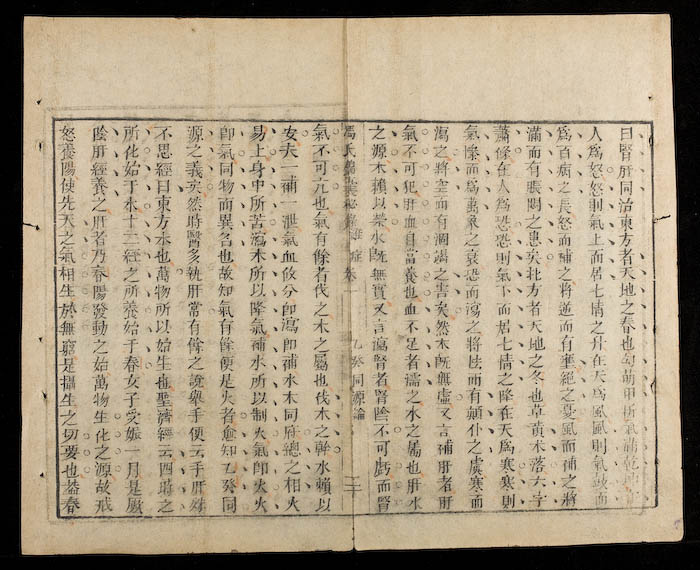 曰腎肝同治東方者天地之春也勾萌甲坼氣滿乾坤
人爲怒怒則氣上而居七情之升在天爲風風則氣鼓而
爲百病之長怒而補之將逆而有壅絕之憂風而補之將
滿而有脹悶之患矣北方者天地之冬也草黃木落六宇
蕭條在人爲恐恐則氣下而居七情之降在天爲寒寒則
氣慘而爲萬象之衰恐而瀉之將怯而有顛仆之虞寒而
瀉之將空而有涸渴之害矣然木旣無虛又言補肝者肝
氣不可犯肝血自當養也血不足者濡之水之屬也肝水
之源木賴以榮水旣無實又言瀉腎者腎陰不可虧而腎
馮氏錦囊秘錄雜症 卷一 乙癸同源論 三
氣不可亢也氣有餘者伐之木之屬也伐木之幹水賴以
安夫一補一泄氣血攸分卽瀉卽補水木同府總之相火
易上身中所苦瀉木所以降氣補水所以制火氣卽火火
卽氣同物而異名也故知氣有餘便是火者愈知乙癸同
源之義矣然時醫多執肝常有餘之說舉手便云平肝
不思經曰東方木也萬物所以始生也聖濟經云四時之
所化始于木十二經之所養始于春女子受娠一月是厥
陰肝經養之肝者乃春陽發動之始萬物生化之源故戒
怒養陽使先天之氣相生於無窮是攝生之切要也蓋春